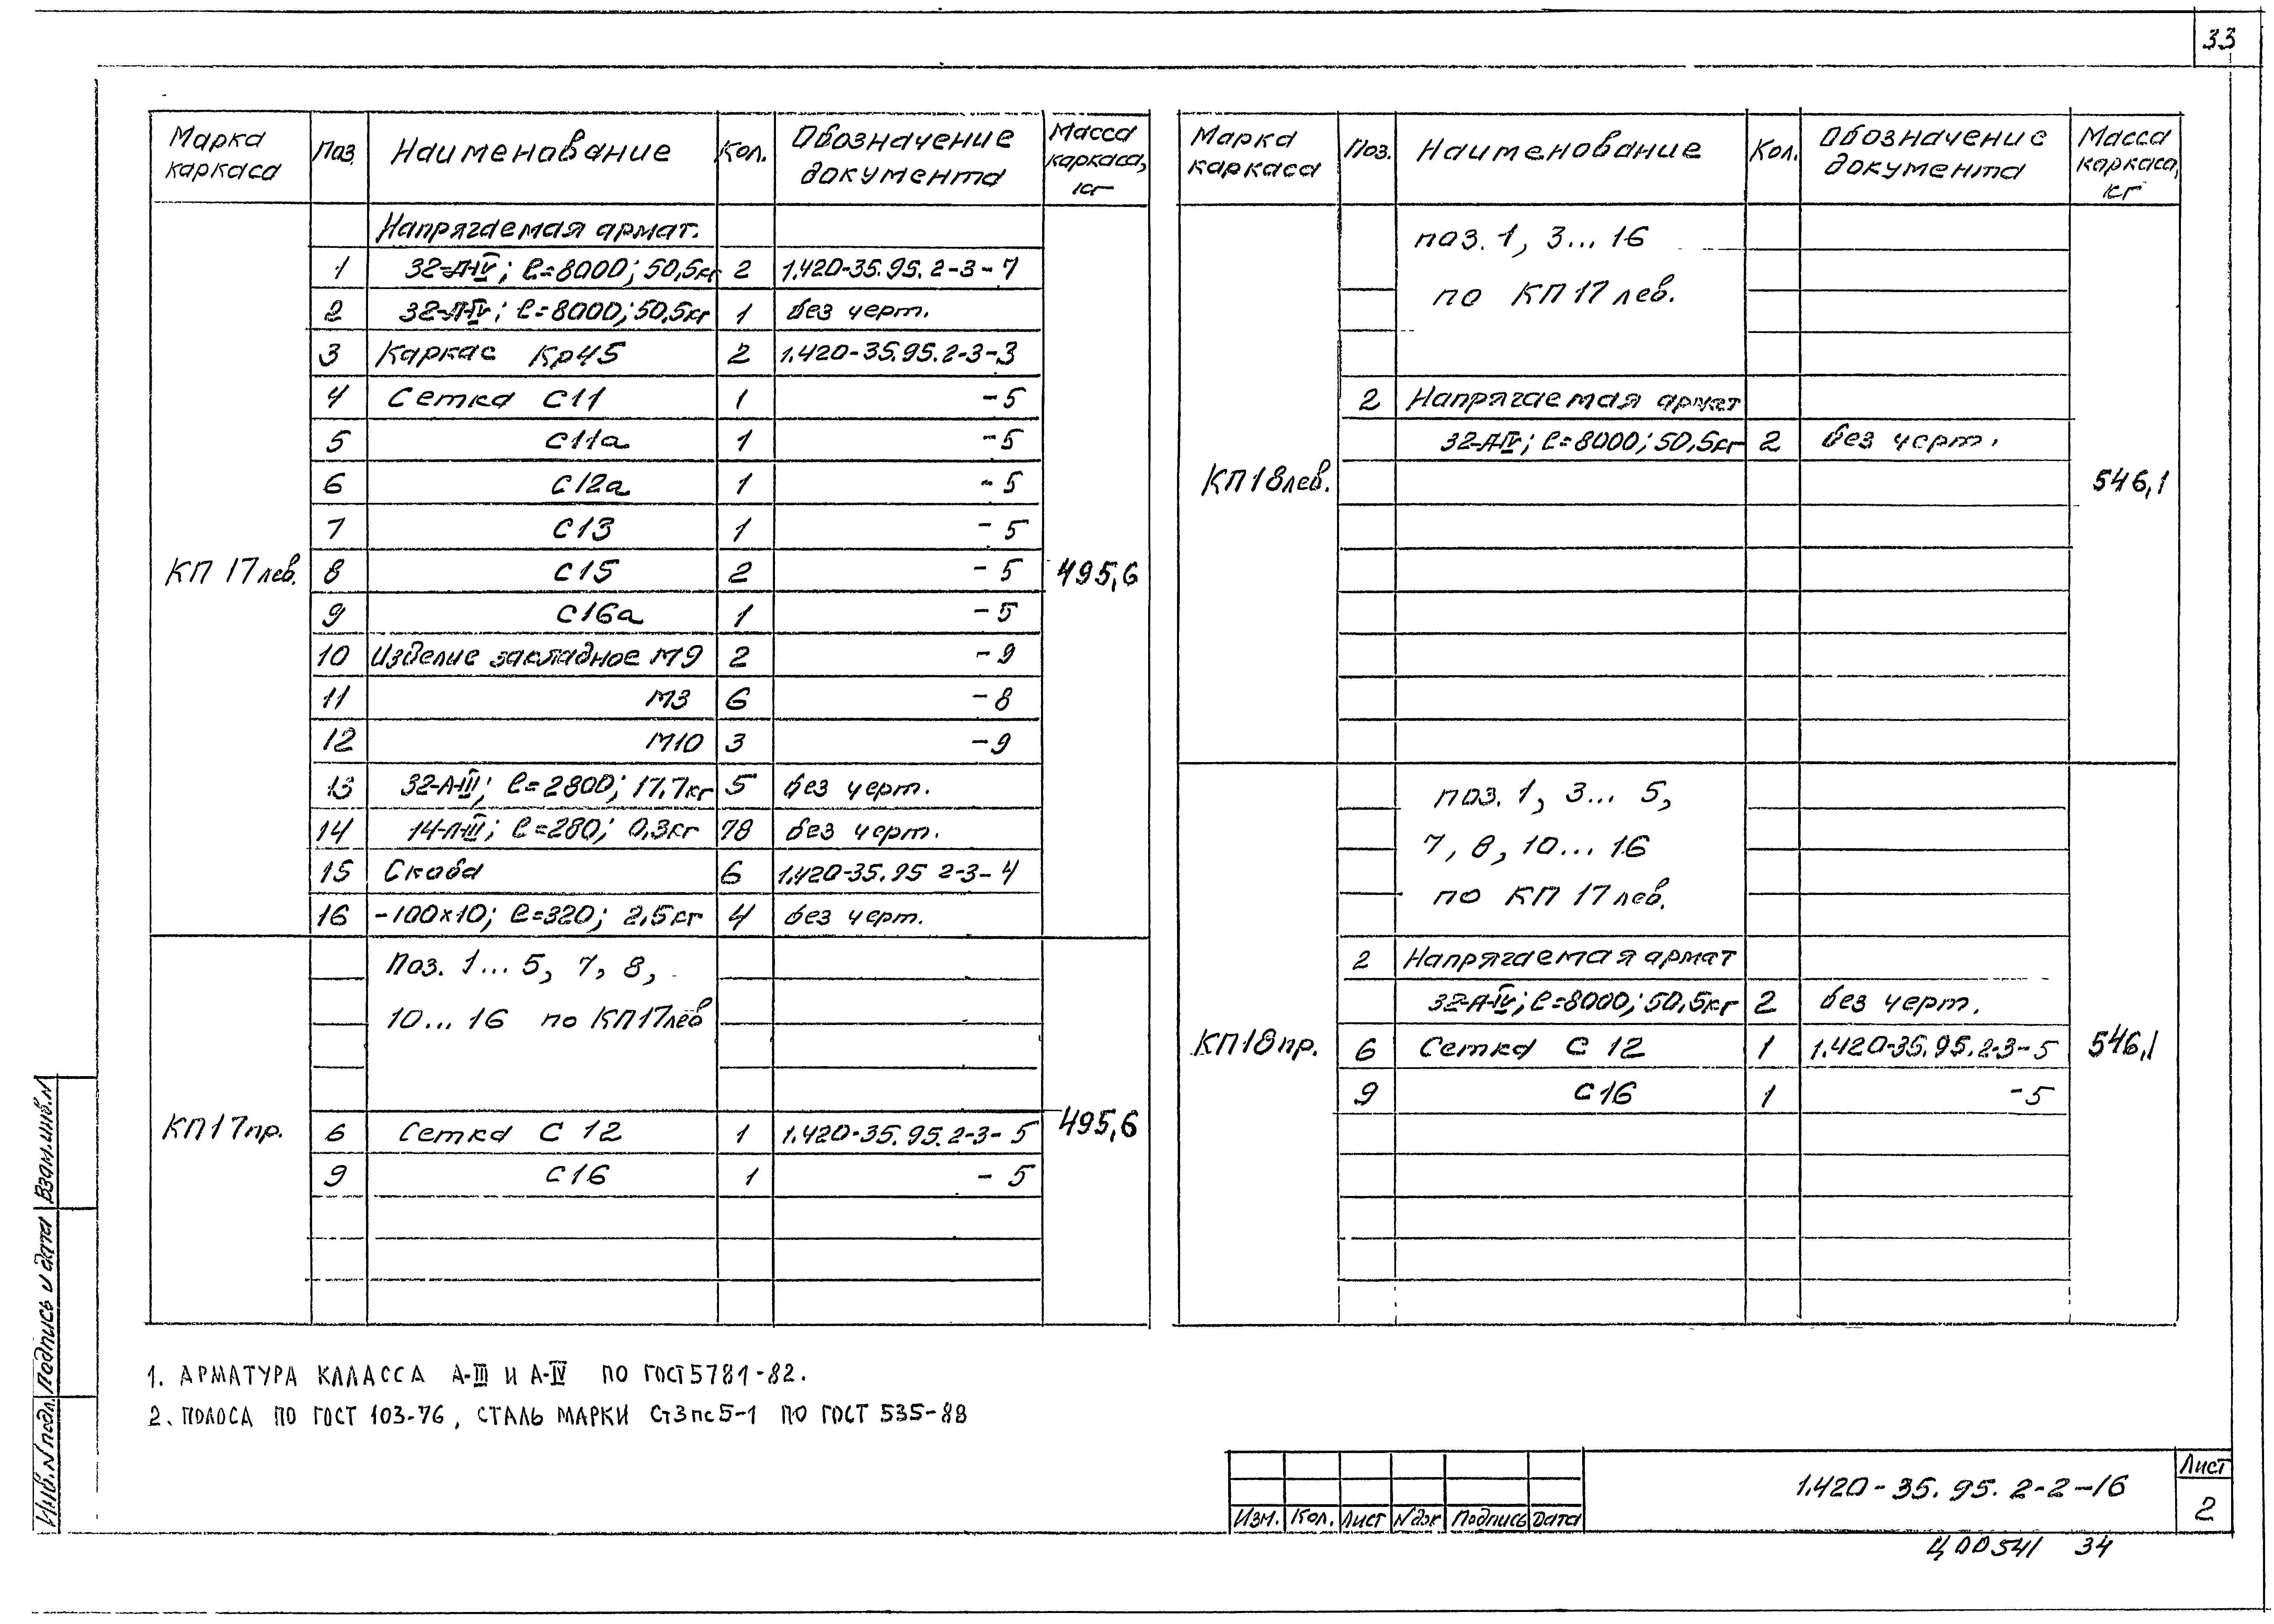 33
Марка каркаса Поз. Наименование Кол. Обозначение документа Масса каркаса, кг
Напрягаемая армат.
1 32-А-IV; ℓ=8000; 50,5кг 2 1.420-35.95.2-3-7
2 32-А-IV; ℓ=8000; 50,5кг 1 без черт.
3 Каркас Кр45 2 1.420-35.95.2-3-3
4 Сетка С11 1 -5
5 С11а 1 -5
6 С12а 1 -5
7 С13 1 -5
КП 17лев. 8 С15 2 -5 495,6
9 С16а 1 -5
10 Изделие закладное М9 2 -9
11 М3 6 -8
12 М10 3 -9
13 32-А-III; ℓ=2800; 17,7кг 5 без черт.
14 14-А-III; ℓ=280; 0,3кг 78 без черт.
15 Скоба 6 1.420-35.95 2-3-4
16 -100×10; ℓ=320; 2,5кг 4 без черт.
Поз. 1... 5, 7, 8,
10... 16 по КП17лев
КП17пр. 6 Сетка С 12 1 1.420-35.95.2-3-5 495,6
9 С16 1 -5
Марка каркаса Поз. Наименование Кол. Обозначение документа Масса каркаса, кг
поз. 1, 3... 16
по КП17лев.
2 Напрягаемая армат
32-А-IV; ℓ=8000; 50,5кг 2 без черт.
КП18лев. 546,1
поз. 1, 3... 5,
7, 8, 10... 16
по КП 17лев.
2 Напрягаемая армат
32-А-IV; ℓ=8000; 50,5кг 2 без черт.
КП18пр. 6 Сетка С 12 1 1.420-35.95.2-3-5 546,1
9 С16 1 -5
1. АРМАТУРА КЛАССА А-III И А-IV ПО ГОСТ 5781-82.
2. ПОЛОСА ПО ГОСТ 103-76, СТАЛЬ МАРКИ Ст3пс5-1 ПО ГОСТ 535-88
Инв.N подл. Подпись и дата Взам.инв.N
Изм. Кол. Лист Nдок Подпись Дата
1.420-35.95.2-2-16
Лист
2
Ц00541 34